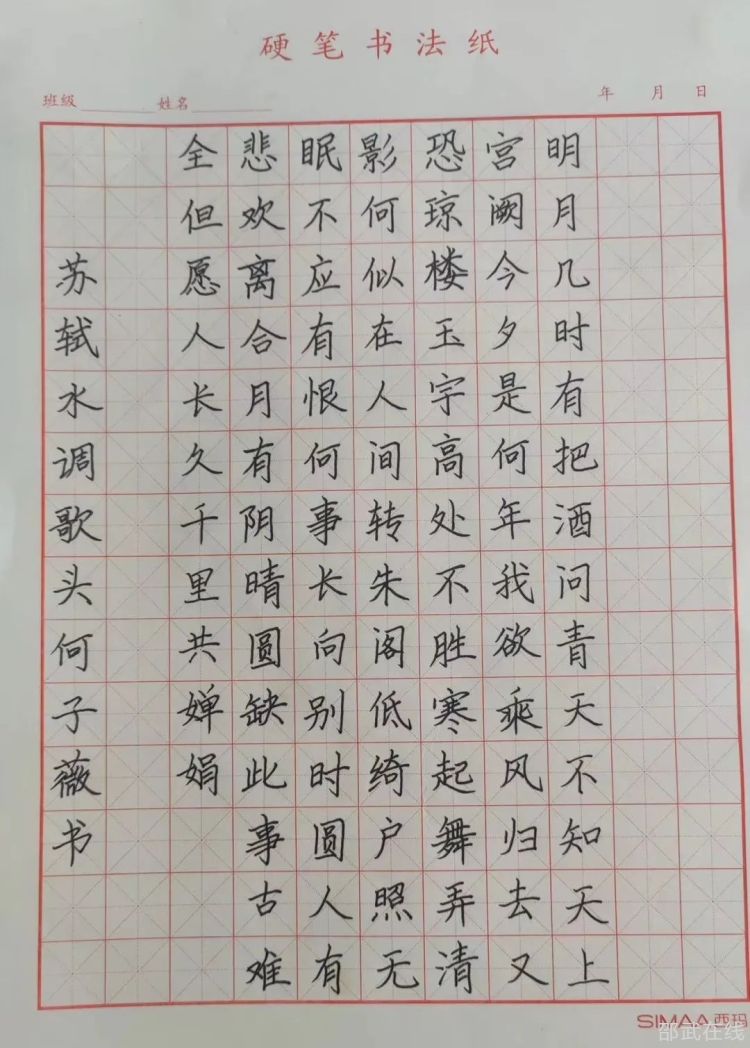 硬笔书法纸
班级 姓名 年 月 日
明月几时有把酒问青天不知天上
宫阙今夕是何年我欲乘风归去又
恐琼楼玉宇高处不胜寒起舞弄清
影何似在人间转朱阁低绮户照无
眠不应有恨何事长向别时圆人有
悲欢离合月有阴晴圆缺此事古难
全但愿人长久千里共婵娟
苏轼水调歌头何子薇书
SIMAA西玛
邵武在线